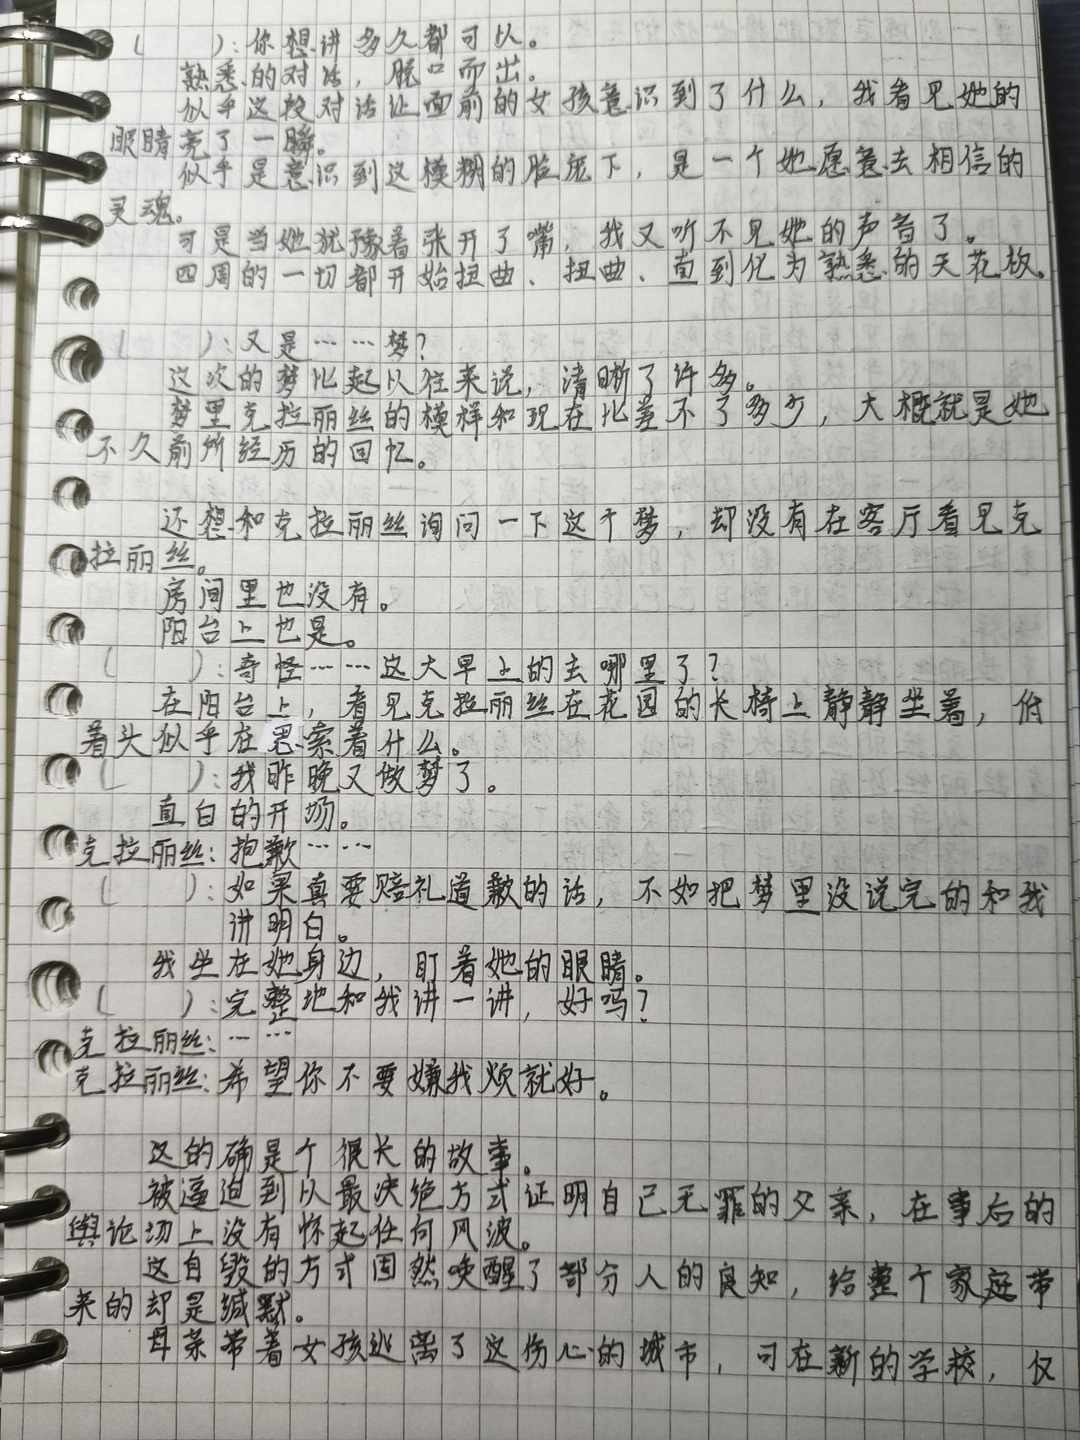 (　　):你想讲多久都可以。
熟悉的对话，脱口而出。
似乎这段对话让面前的女孩意识到了什么，我看见她的
眼睛亮了一瞬。
似乎是意识到这模糊的脸庞下，是一个她愿意去相信的
灵魂。
可是当她犹豫着张开了嘴，我又听不见她的声音了。
四周的一切都开始扭曲、扭曲、直到化为熟悉的天花板。
(　　):又是……梦?
这次的梦比起以往来说，清晰了许多。
梦里克拉丽丝的模样和现在比差不了多少，大概就是她
不久前所经历的回忆。
还想和克拉丽丝询问一下这个梦，却没有在客厅看见克
拉丽丝。
房间里也没有。
阳台上也是。
(　　):奇怪……这大早上的去哪里了?
在阳台上，看见克拉丽丝在花园的长椅上静静坐着，低
着头似乎在思索着什么。
(　　):我昨晚又做梦了。
直白的开场。
克拉丽丝:抱歉……
(　　):如果真要赔礼道歉的话，不如把梦里没说完的和我
讲明白。
我坐在她身边，盯着她的眼睛。
(　　):完整地和我讲一讲，好吗?
克拉丽丝:……
克拉丽丝:希望你不要嫌我烦就好。
这的确是个很长的故事。
被逼迫到以最决绝方式证明自己无罪的父亲，在事后的
舆论场上没有怀起任何风波。
这自毁的方式固然唤醒了部分人的良知，给整个家庭带
来的却是缄默。
母亲带着女孩逃离了这伤心的城市，可在新的学校，仅